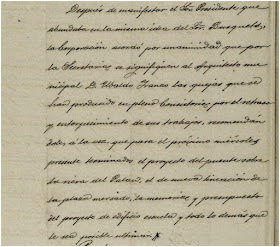 Después de manifestar el Sor. Presidente que
abundaba en la misma idea del Sor. Busquets,
la Corporación acordó por unanimidad que por
la Secretaría se signifiquen al Arquitecto mu-
nicipal D. Ubaldo Iranzo las quejas que se
han producido en pleno Consistorio, por el retraso
y entorpecimiento de sus trabajos, recomendán
dole, á la vez, que para el próximo miércoles
presente terminados el proyecto del puente sobre
la riera del Palau, el de nueva alineación de
la plaza mercado, la memoria y presupuesto
del proyecto de edificio escuela y todo lo demás que
le sea posible ultimar.